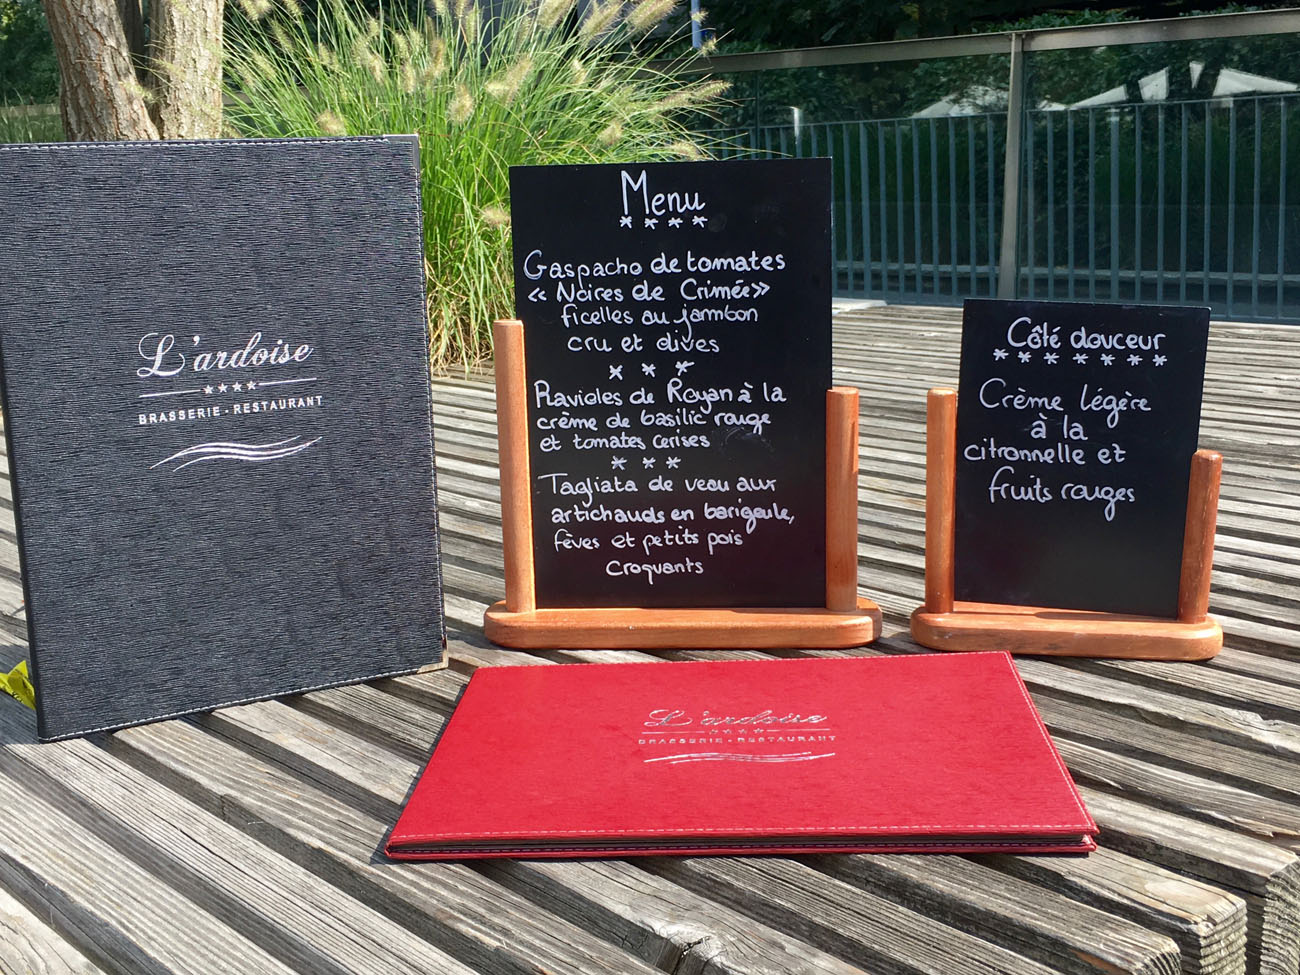 L'ardoise
★★★★
BRASSERIE • RESTAURANT
Menu
****
Gaspacho de tomates
« Noires de Crimée »
ficelles au jambon
cru et olives
***
Ravioles de Royan à la
crème de basilic rouge
et tomates cerises
***
Tagliata de veau aux
artichauds en barigoule,
fèves et petits pois
croquants
Côté douceur
*******
Crème légère
à la
citronnelle et
fruits rouges
L'ardoise
★★★★
BRASSERIE • RESTAURANT